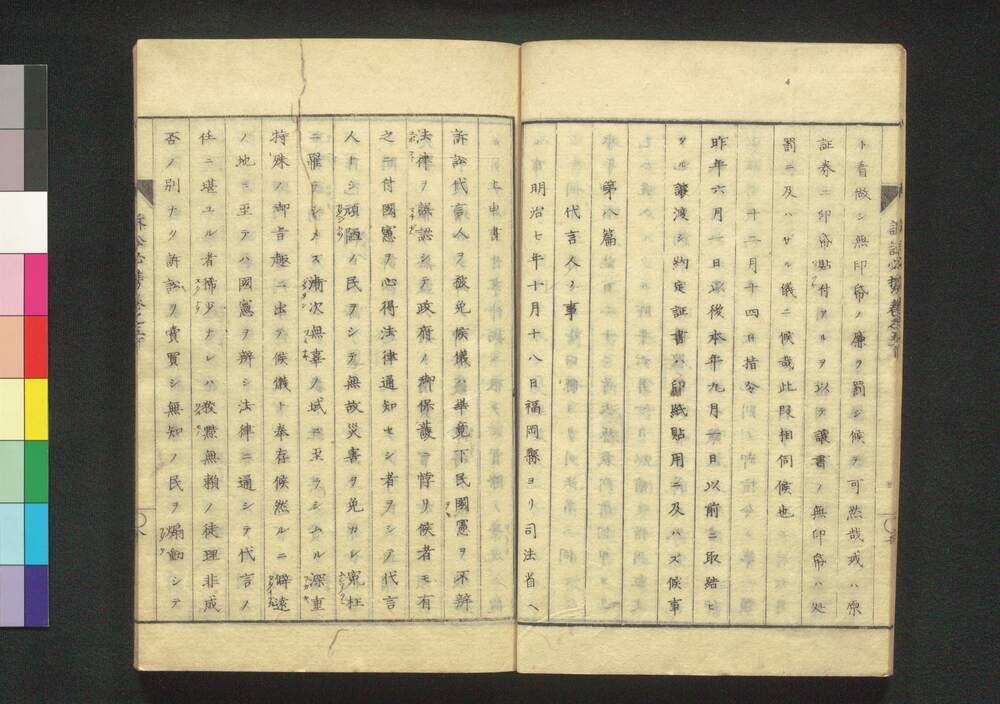 ト看做シ無印帋ノ廉ヲ罰シ候テ可然哉或ハ原
証券ニ印帋貼付アルヲ以テ讓書ノ無印帋ハ処
罰ニ及ハサル儀ニ候哉此段相伺候也
十二月十四日指令
昨年六月一日以後本年九月 日以前ニ取結ヒ
タル讓渡シ約定証書ハ印紙貼用ニ及ハズ候事
第八篇
代言人ノ事
明治七年十月十八日福岡縣ヨリ司法省ヘ
上申書
訴訟代言人ヲ被免候儀畢竟下民國憲ヲ不辨
法律ヲ誤認シテ政府ノ御保護ニ悖リ候者モ有
之ニ付國憲ヲ心得法律通知セシ者ヲシテ代言
人トシ頑陋ノ民ヲシテ無故災害ヲ免カレ冤枉
ニ罹ラシメズ漸次無辜ノ域ニ至ラシムル深重
特殊ノ御旨趣ニ出テ候儀ト奉存候然ルニ僻遠
ノ地ニ至テハ國憲ヲ辨シ法律ニ通シテ代言ノ
任ニ堪ユル者稀少ナレハ狡黠無賴ノ徒理非成
否ノ別ナク訴訟ヲ賣買シ無知ノ民ヲ煽動シテ